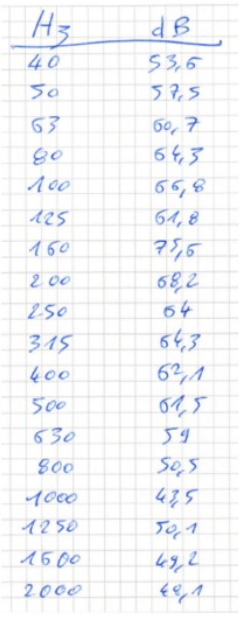 Hz dB
40 53,6
50 57,5
63 60,7
80 64,3
100 66,8
125 61,8
160 75,6
200 68,2
250 64
315 64,3
400 62,1
500 61,5
630 59
800 50,5
1000 43,5
1250 50,1
1600 49,2
2000 49,1